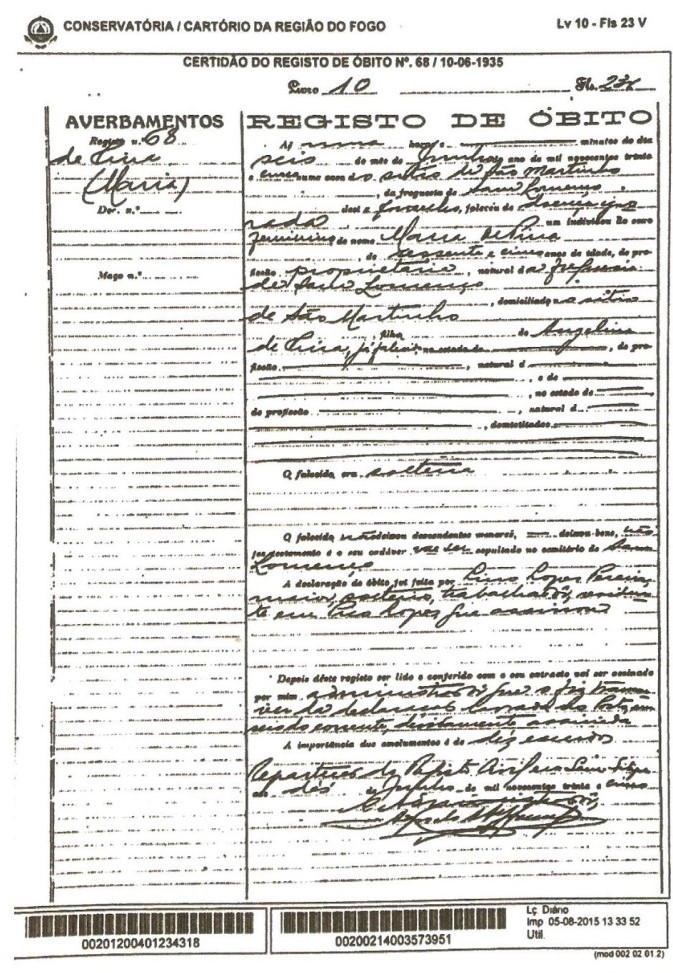 CONSERVATÓRIA / CARTÓRIO DA REGIÃO DO FOGO
Lv 10 - Fls 23 V
CERTIDÃO DO REGISTO DE ÓBITO Nº. 68 / 10-06-1935
Livro 10 Fls. 23v
AVERBAMENTOS
Registo n.º 68
de Pina
(Maria)
Doc. n.º
Maço n.º
REGISTO DE ÓBITO
Às uma horas e minutos do dia
seis do mês de Junho do ano de mil novecentos trinta
e cinco numa casa do sítio de São Martinho
, da freguesia de Sam Lourenço
, dest e Concelho, faleceu de doença igno
rada um indivíduo do sexo
feminino de nome Maria de Pina
, de sessenta e cinco anos de idade, de pro-
fissão proprietária, natural da freguesia
de Sam Lourenço
, domiciliado no sítio
de São Martinho
filha de Angelina
de Pina, já falecida, no estado de , de pro-
fissão , natural d
, e de
, no estado de
de profissão , natural d
, domiciliados
O falecido era solteira
O falecido não deixou descendentes menores, deixou bens, não
fez testamento e o seu cadáver vai ser sepultado no cemitério de Sam
Lourenço
A declaração de óbito foi feita por Lino Lopes Pereira,
maior, solteiro, trabalhador, residen
te em Pico Lopes que assinou
Depois dêste registo ser lido e conferido com o seu extracto vai ser assinado
por mim, administrador que o fiz transcre
ver da declaração
A importância dos emolumentos é de dez escudos
Repartição do Registo Civil em Sam Filipe
aos dés de Junho de mil novecentos trinta e cinco
00201200401234318
00200214003573951
Lç. Diário
Imp 05-08-2015 13 33 52
Util.
(mod 002 02 01.2)